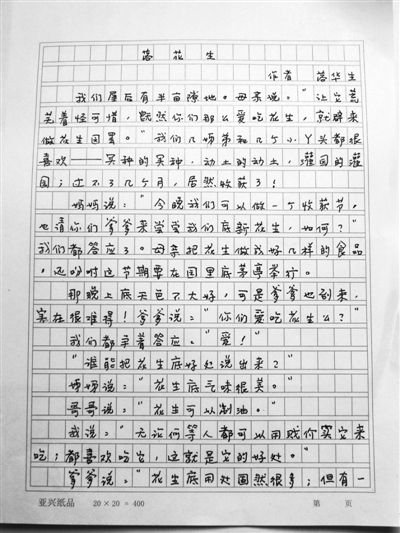 落花生
作者 落华生
我们屋后有半亩隙地。母亲说："让它荒
芜着怪可惜，既然你们那么爱吃花生，就辟来
做花生园罢。"我们几姊弟和几个小丫头都很
喜欢——买种的买种，动土的动土，灌园的灌
园；过不了几个月，居然收获了！
妈妈说："今晚我们可以做一个收获节，
也请你们爹爹来尝尝我们底新花生，如何？"
我们都答应了。母亲把花生做成好几样的食品
，还吩咐这节期要在园里底茅亭举行。
那晚上底天色不大好，可是爹爹也到来，
实在很难得！爹爹说："你们爱吃花生么？"
我们都争着答应："爱！"
"谁能把花生底好处说出来？"
姊姊说："花生底气味很美。"
哥哥说："花生可以制油。"
我说："无论何等人都可以用贱价买它来
吃；都喜欢吃它，这就是它的好处。"
爹爹说："花生底用处固然很多；但有一
亚兴纸品 20×20=400 第 页